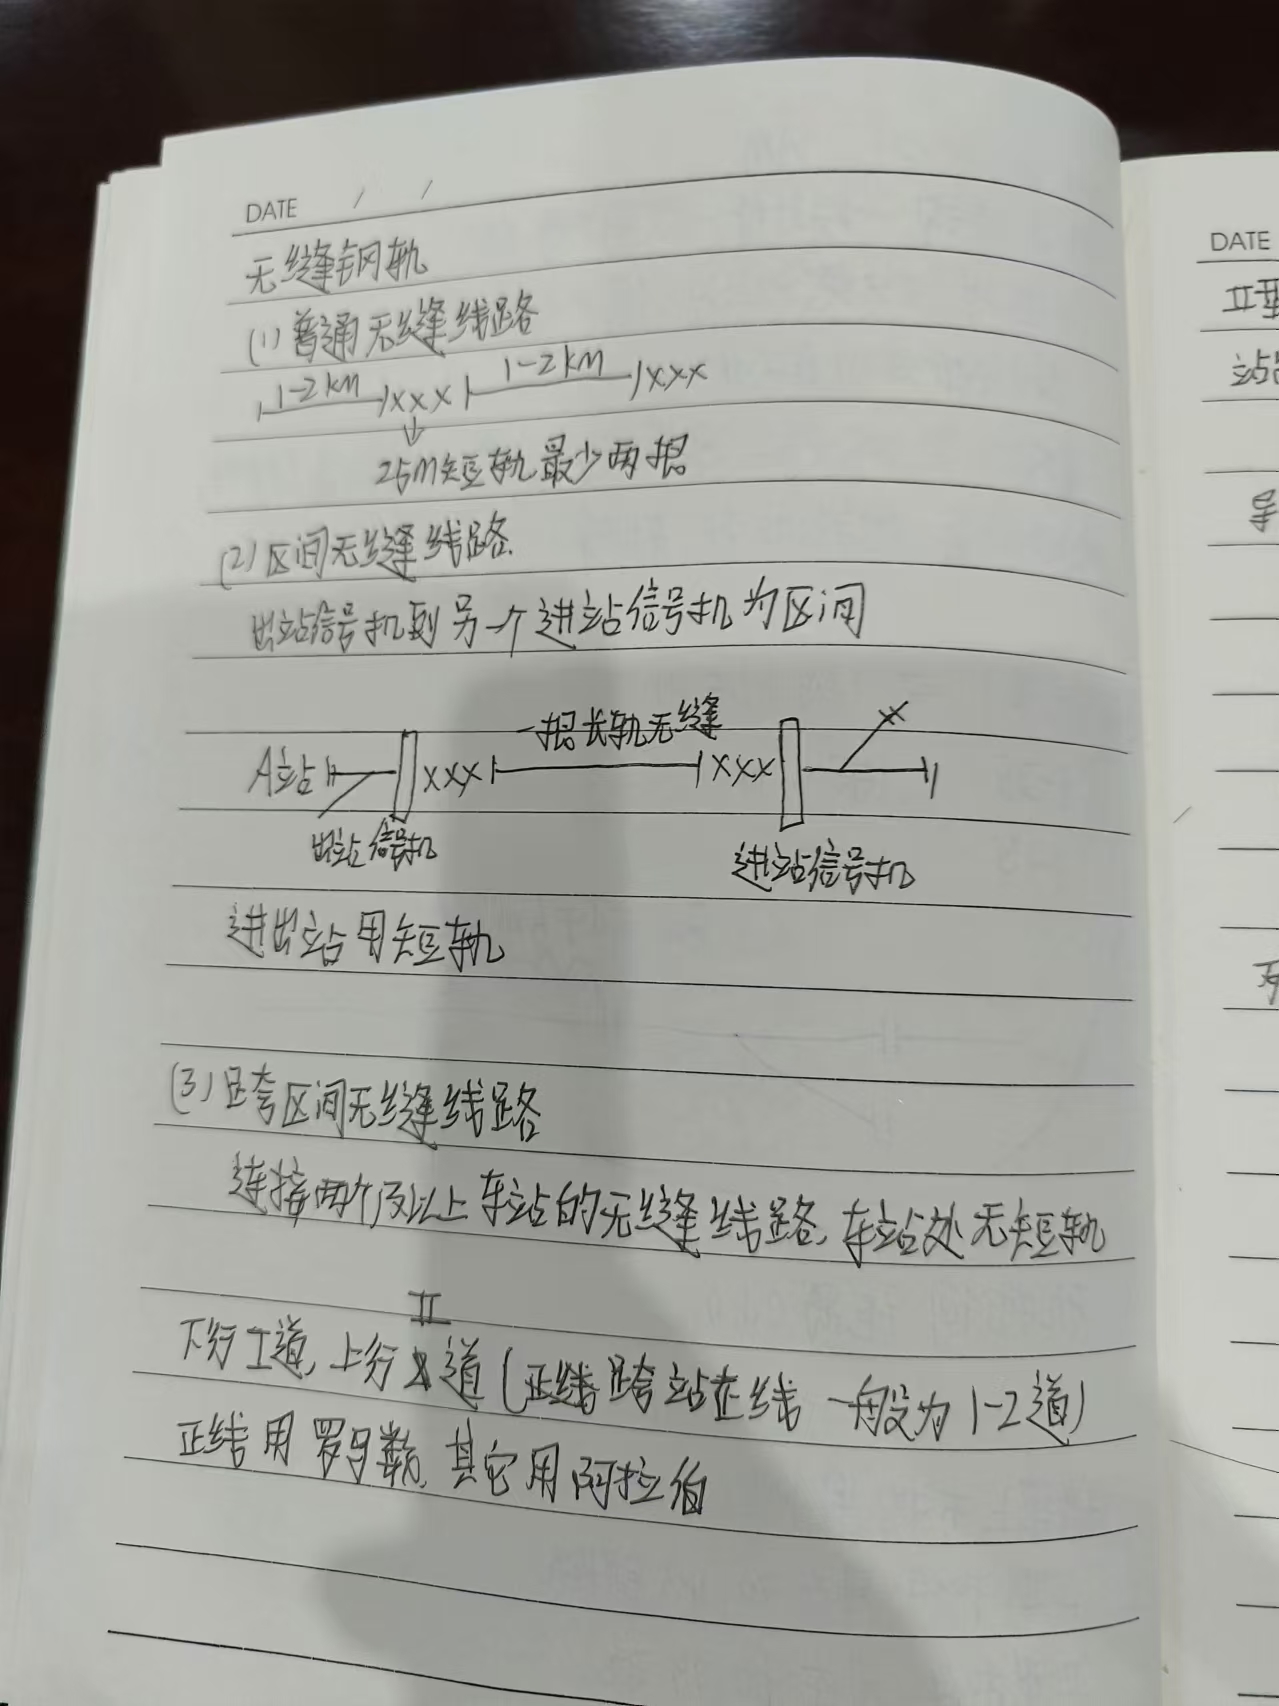 DATE / /
无缝钢轨
(1)普通无缝线路
1-2KM XXX 1-2KM XXX
25M短轨最少两根
(2)区间无缝线路.
出站信号机到另一个进站信号机为区间
一根长轨无缝
A站 XXX XXX
出站信号机
进站信号机
进出站用短轨
(3)跨区间无缝线路
连接两个及以上车站的无缝线路,车站处无短轨
II
下行I道,上行 道(正线跨站在线一般为1-2道)
正线用罗马数,其它用阿拉伯
DATE
II型
站